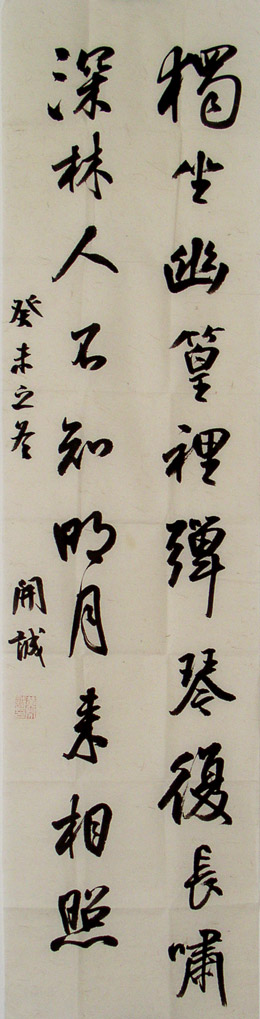 獨坐幽篁裡彈琴復長嘯
深林人不知明月来相照
癸未之冬 開誠